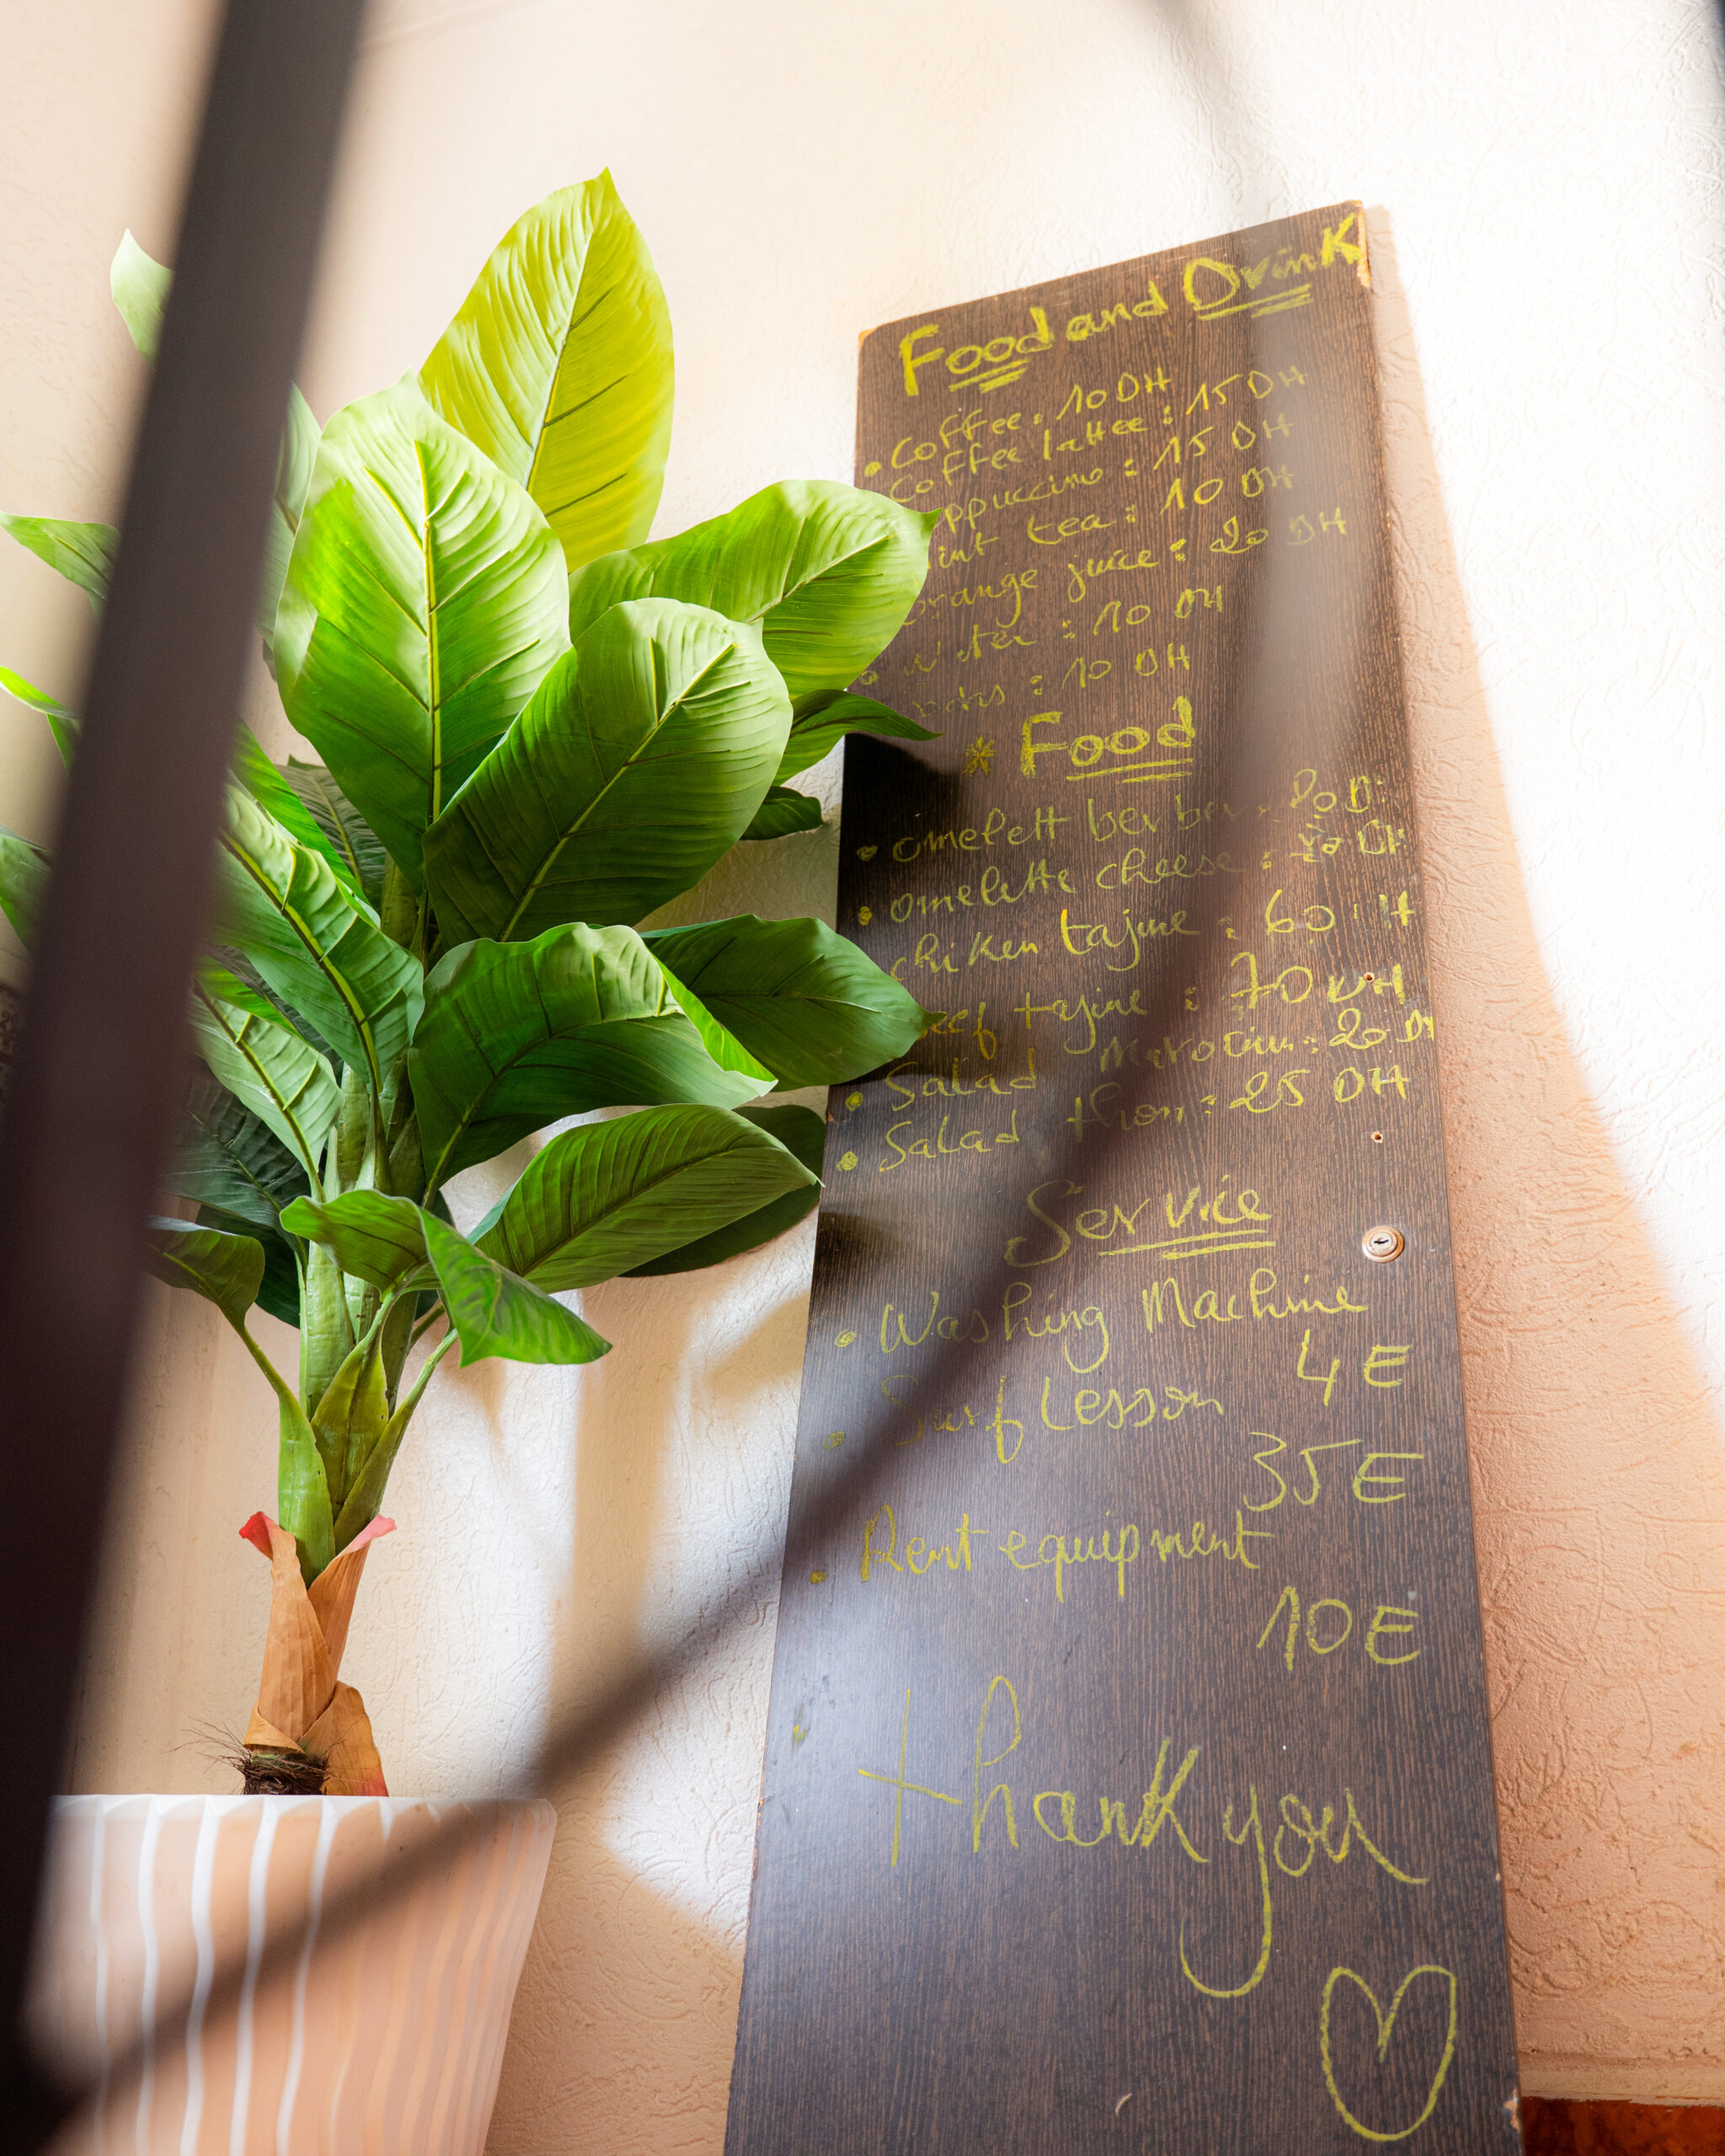 Food and Drink
• Coffee: 10 DH
Coffee lattee: 15 DH
appuccino: 15 DH
int tea: 10 DH
orange juice: 20 DH
• Water: 10 DH
: 10 DH
* Food
• omelett ber ber
• omelette cheese:
chiken tajine: 60 H
eef tajine: 70 DH
• Salad Marocain: 20 D
• Salad thon: 25 DH
Service
• Washing Machine
4 E
• Surf Lesson
35 E
• Rent equipment
10 E
thank you